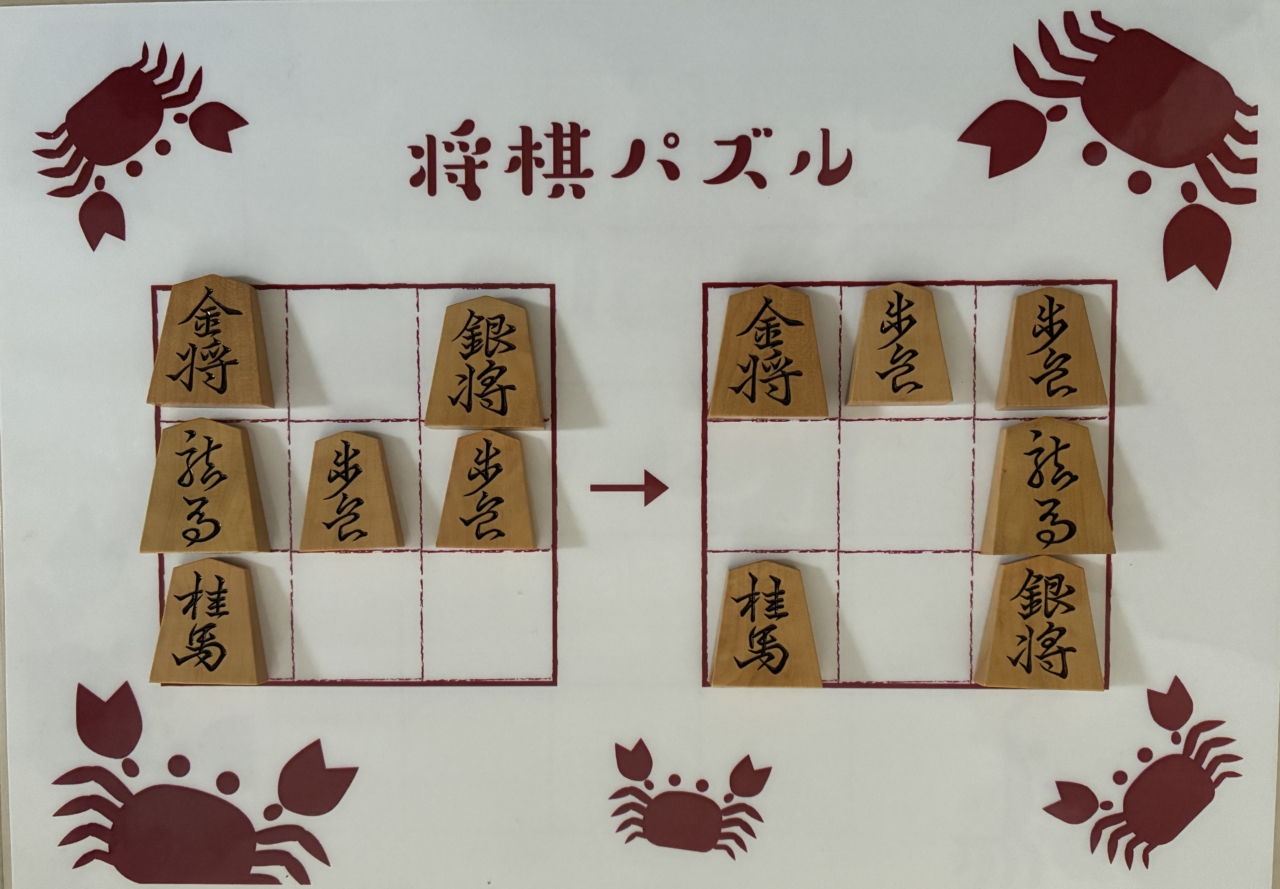 将棋パズル
金将
銀将
龍馬
歩兵
歩兵
桂馬
金将
歩兵
歩兵
龍馬
桂馬
銀将